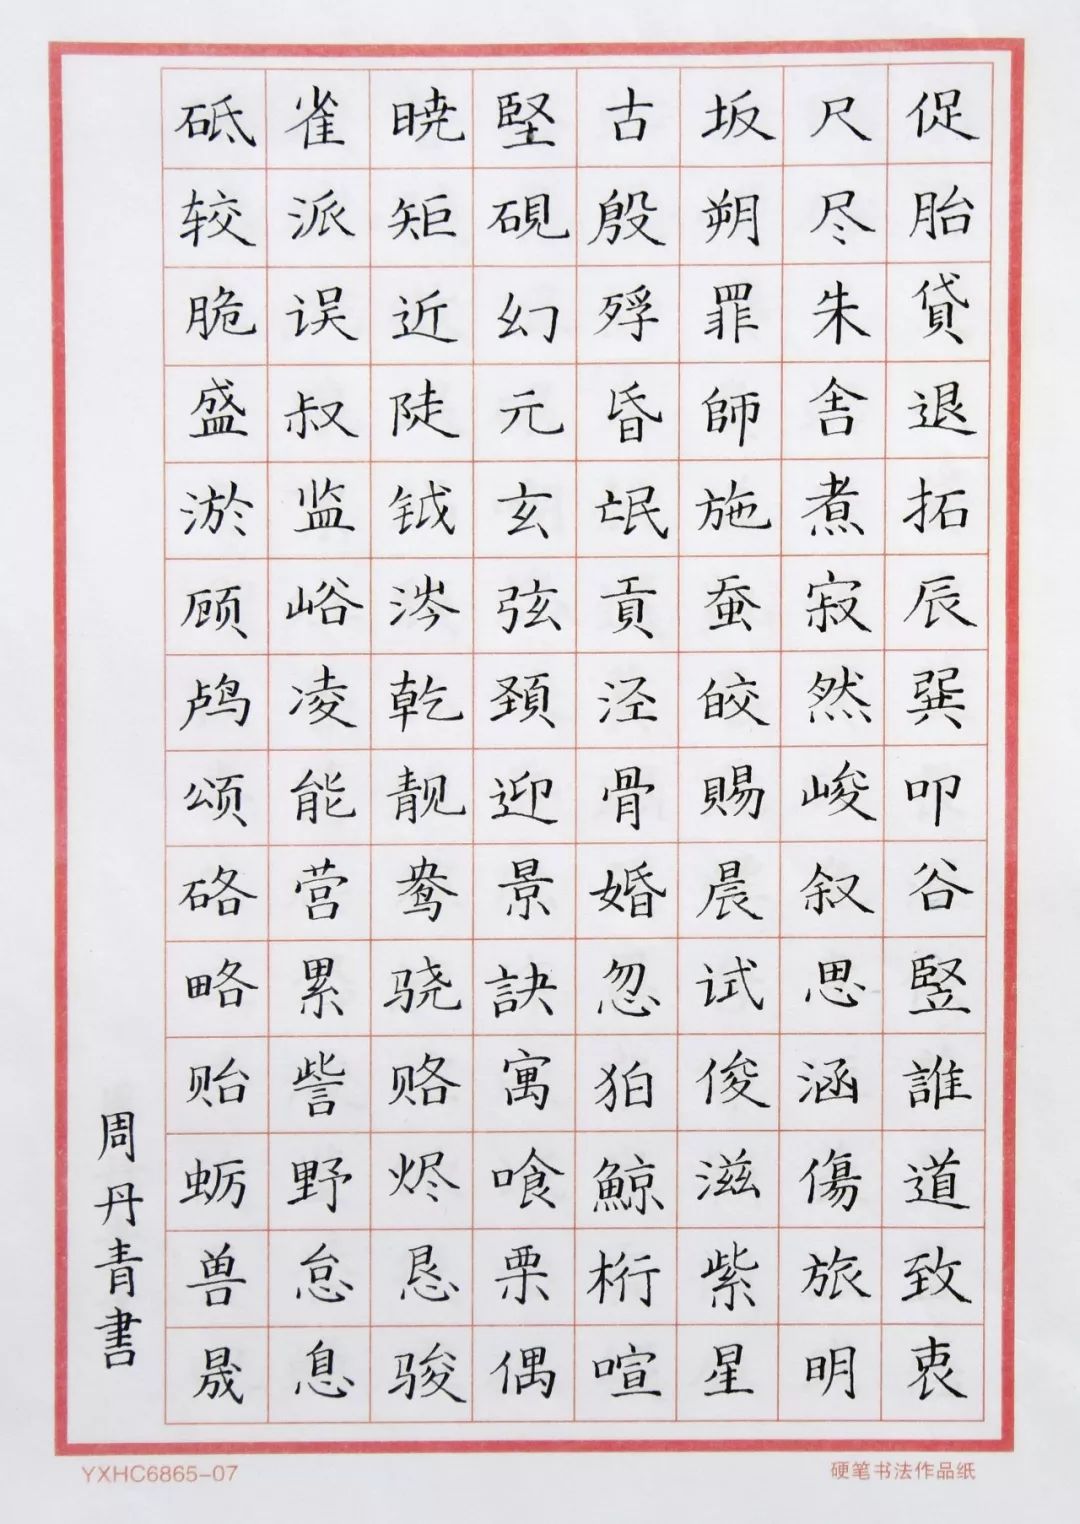 促胎貸退拓辰巽叩谷竪誰道致衷
尺尽朱舎煮寂然峻叙思涵傷旅明
坂朔罪師施蚕皎賜晨试俊滋紫星
古殷殍昏氓貢泾骨婚忽狛鯨桁喧
堅硯幻元玄弦頚迎景訣寓喰栗偶
暁矩近陡钺涔乾靓鸯骁赂烬恳骏
雀派误叔监峪凌能营累訾野怠息
砥较脆盛淤顾鸬颂硌略贻蛎兽晟
周丹青書
YXHC6865-07
硬笔书法作品纸